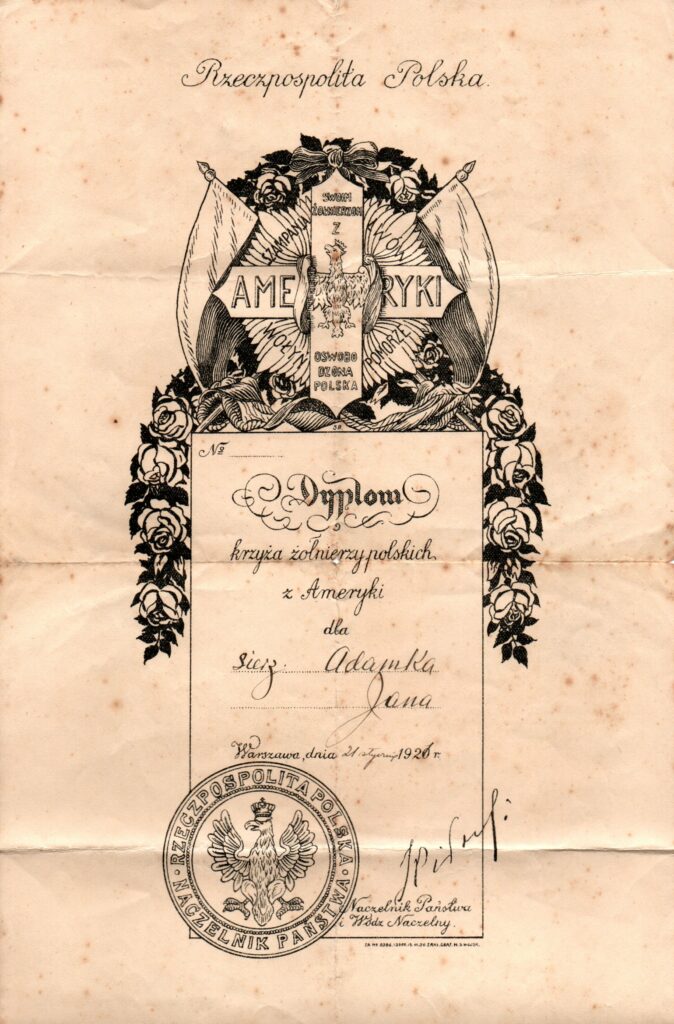 Rzeczpospolita Polska.
SWOIM
ŻOŁNIERZOM
Z
SZAMPANIA
LWÓW
AMERYKI
WOŁYŃ
POMORZE
OSWOBO
DZONA
POLSKA
№
Dyplom
krzyża żołnierzy polskich
z Ameryki
dla
sierż. Adamka
Jana
Warszawa, dnia 21 stycznia 1926 r.
RZECZPOSPOLITA POLSKA
NACZELNIK PAŃSTWA
JPiłsudski
Naczelnik Państwa
i Wódz Naczelny.